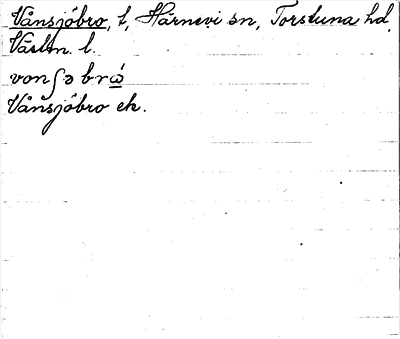 Vånsjöbro, t, Härnevi sn, Torstuna hd,
Västm. l.
vonʃəbrώ̲
Vånsjöbro ek.